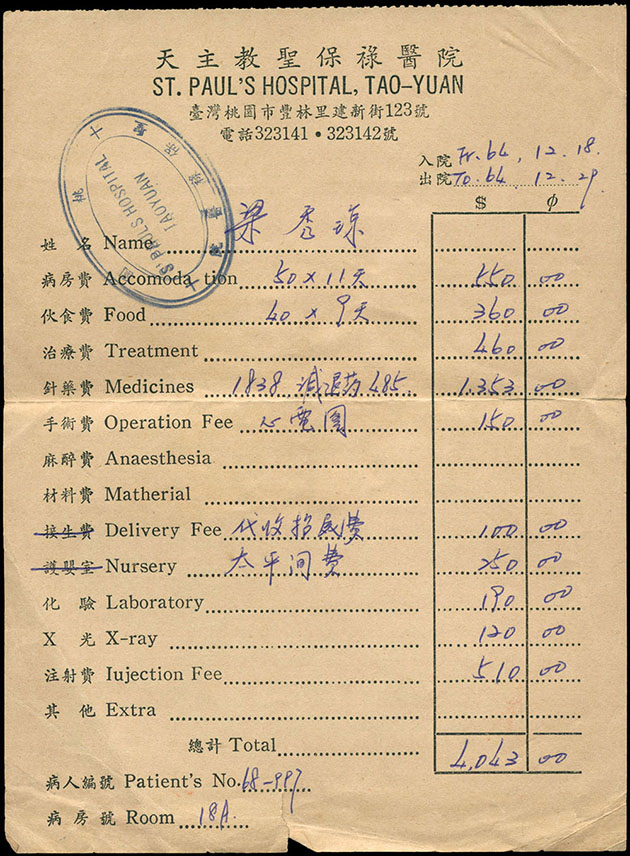 天主教聖保祿醫院
ST. PAUL'S HOSPITAL, TAO-YUAN
臺灣桃園市豐林里建新街123號
電話323141・323142號
入院 Fr. 64, 12. 18.
出院 To. 64 12. 29
ST PAULS HOSPITAL
TAOYUAN
$ ¢
姓名 Name 梁秀琼
病房費 Accomodation 50 x 11天 550 00
伙食費 Food 40 x 9天 360 00
治療費 Treatment 460 00
針藥費 Medicines 1838 減退药 485 1.353 00
手術費 Operation Fee 心電圖 150 00
麻醉費 Anaesthesia
材料費 Matherial
接生費 Delivery Fee 代收招魂費 100 00
護嬰室 Nursery 太平间费 250 00
化驗 Laboratory 190 00
X光 X-ray 120 00
注射費 Iujection Fee 510 00
其他 Extra
總計 Total 4,043 00
病人編號 Patient's No. 68-997
病房號 Room 18A.